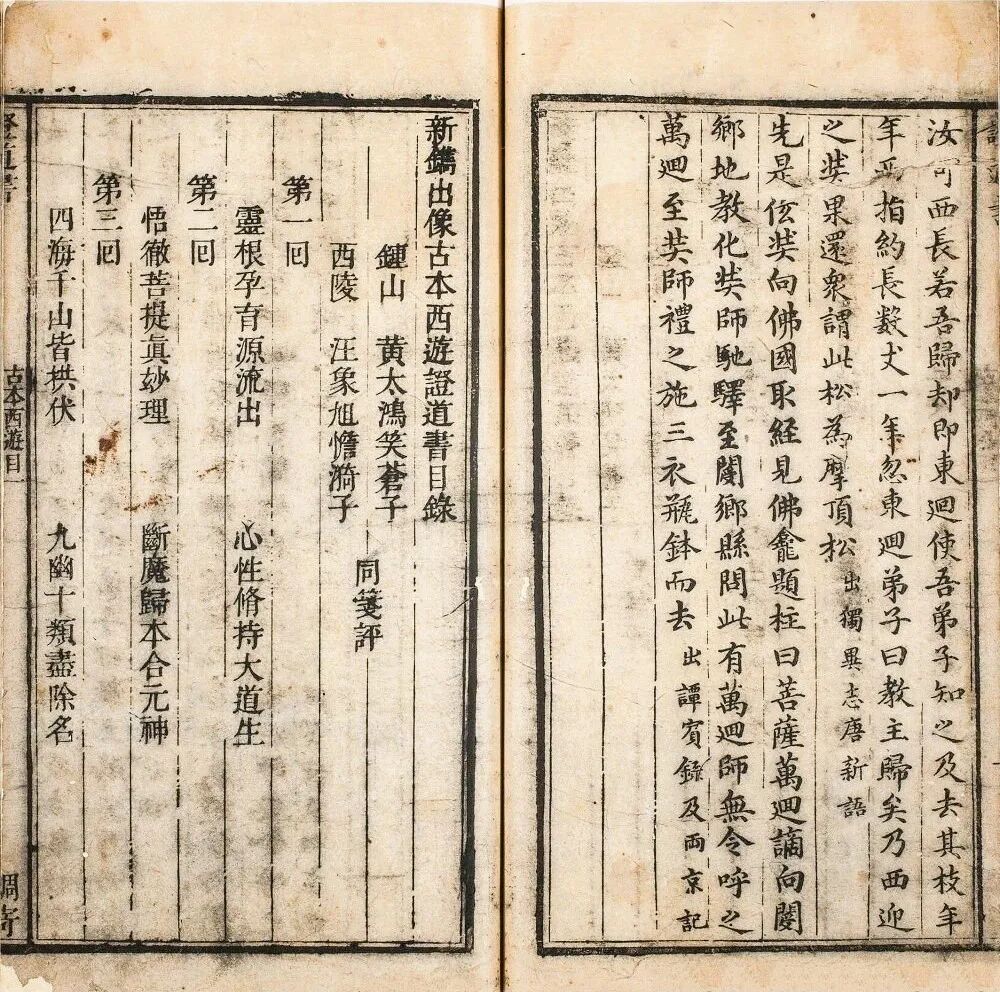 汝可西長若吾歸却即東迴使吾弟子知之及去其枝年
年西指約長数丈一年忽東迴弟子曰教主歸矣乃西迎
之奘果還衆謂此松為摩頂松出獨異志唐新語
先是伭奘向佛國取經見佛龕題柱曰菩薩萬迴謫向閿
鄉地教化奘師馳驛至閿鄉縣問此有萬迴師無令呼之
萬迴至奘師禮之施三衣瓶鉢而去出譚賓錄及両京記
新鐫出像古本西遊證道書目錄
鍾山 黃太鴻笑蒼子
西陵 汪象旭憺漪子
同箋評
第一回
靈根孕育源流出 心性脩持大道生
第二回
悟徹菩提眞妙理 斷魔歸本合元神
第三回
四海千山皆拱伏 九幽十類盡除名
證道書
古本西遊目一
蜩寄